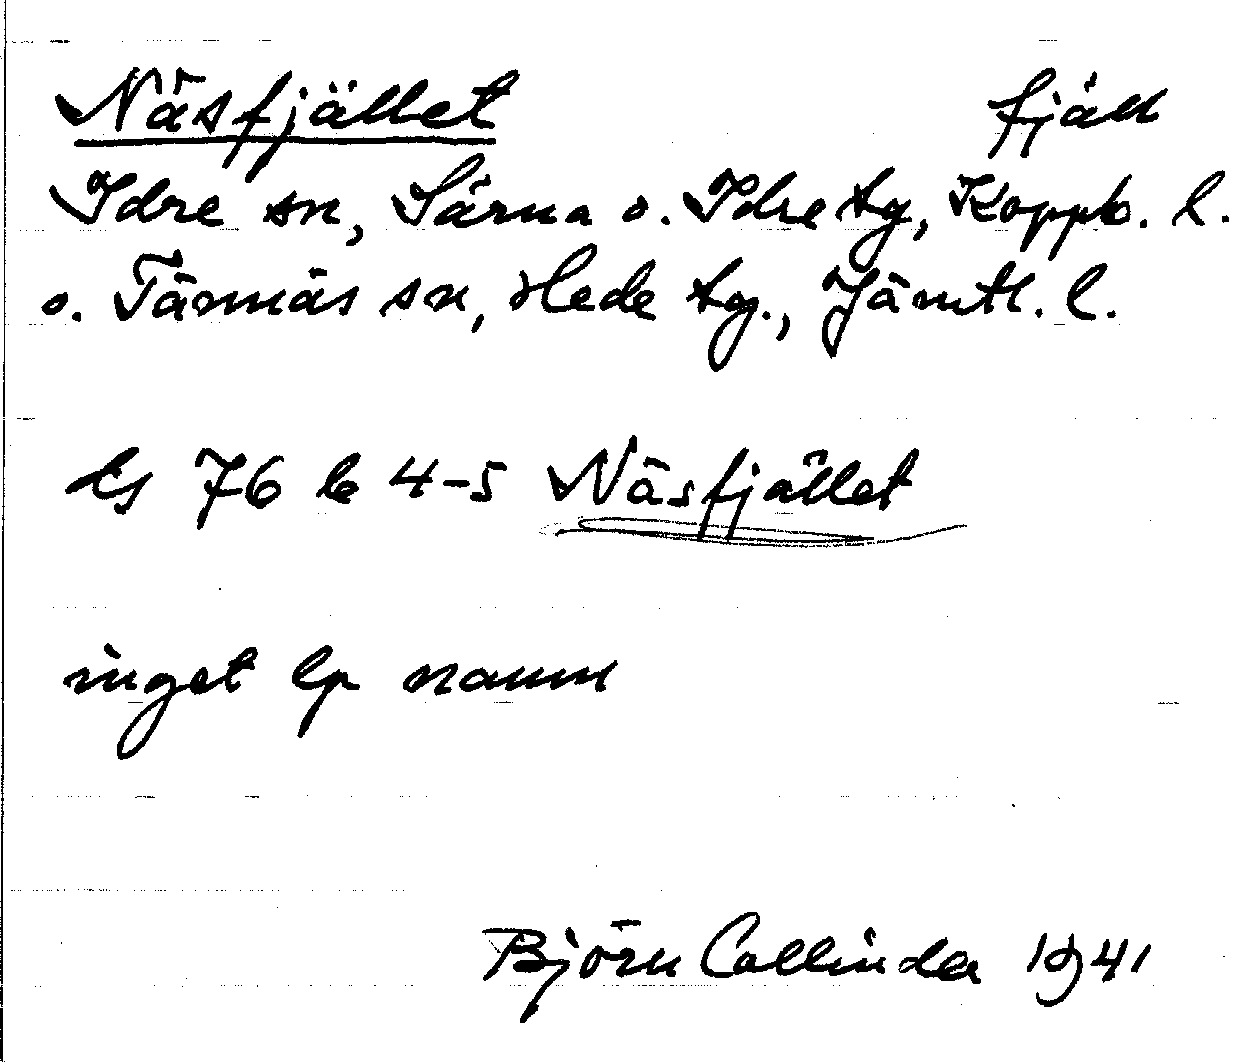 Näsfjället fjäll
Idre sn, Särna o. Idre tg, Koppb. l.
o. Tännäs sn, Hede tg., Jämtl. l.
Ls 76 b 4-5 Näsfjället
inget lp namn
Björn Collinder 1941